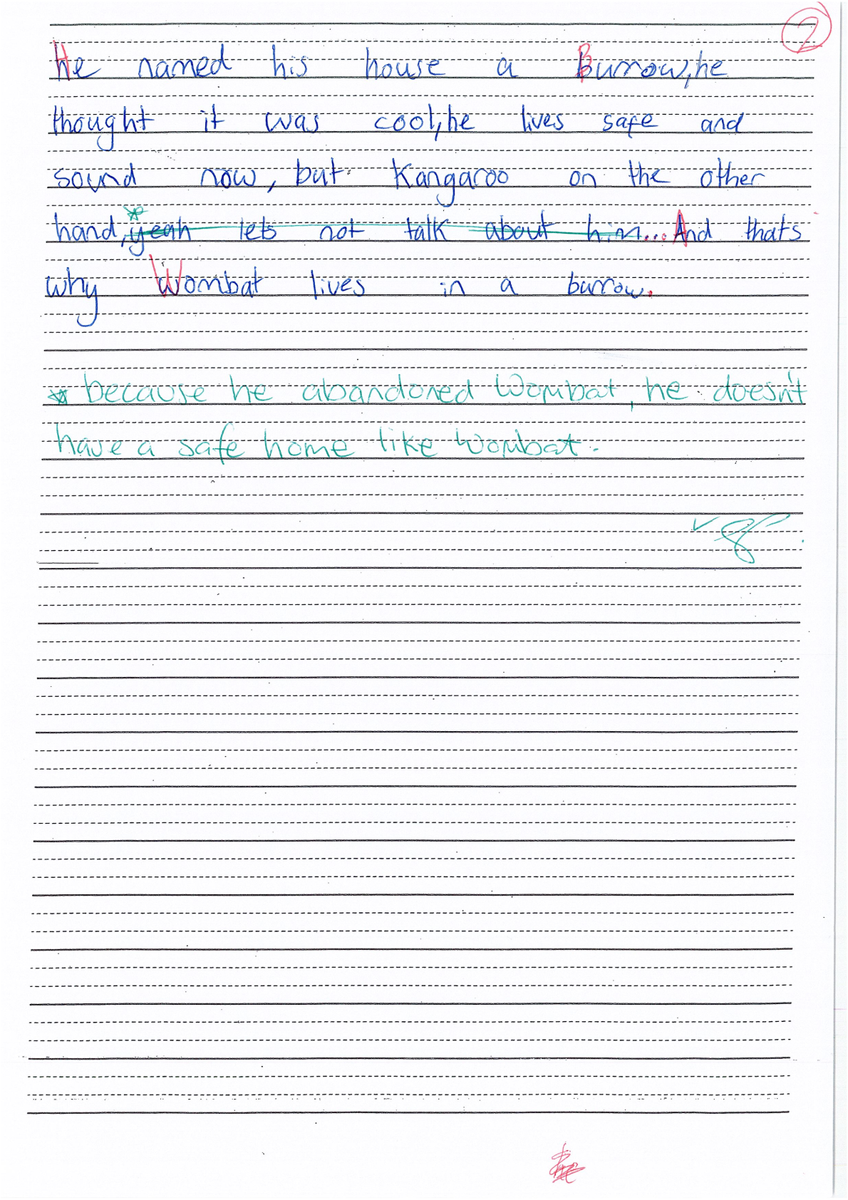 2
He named his house a Burrow, he
thought it was cool, he lives safe and
sound now, but Kangaroo on the other
hand, yeah lets not talk about him... And thats
why Wombat lives in a burrow.
* because he abandoned Wombat, he doesn't
have a safe home like Wombat.